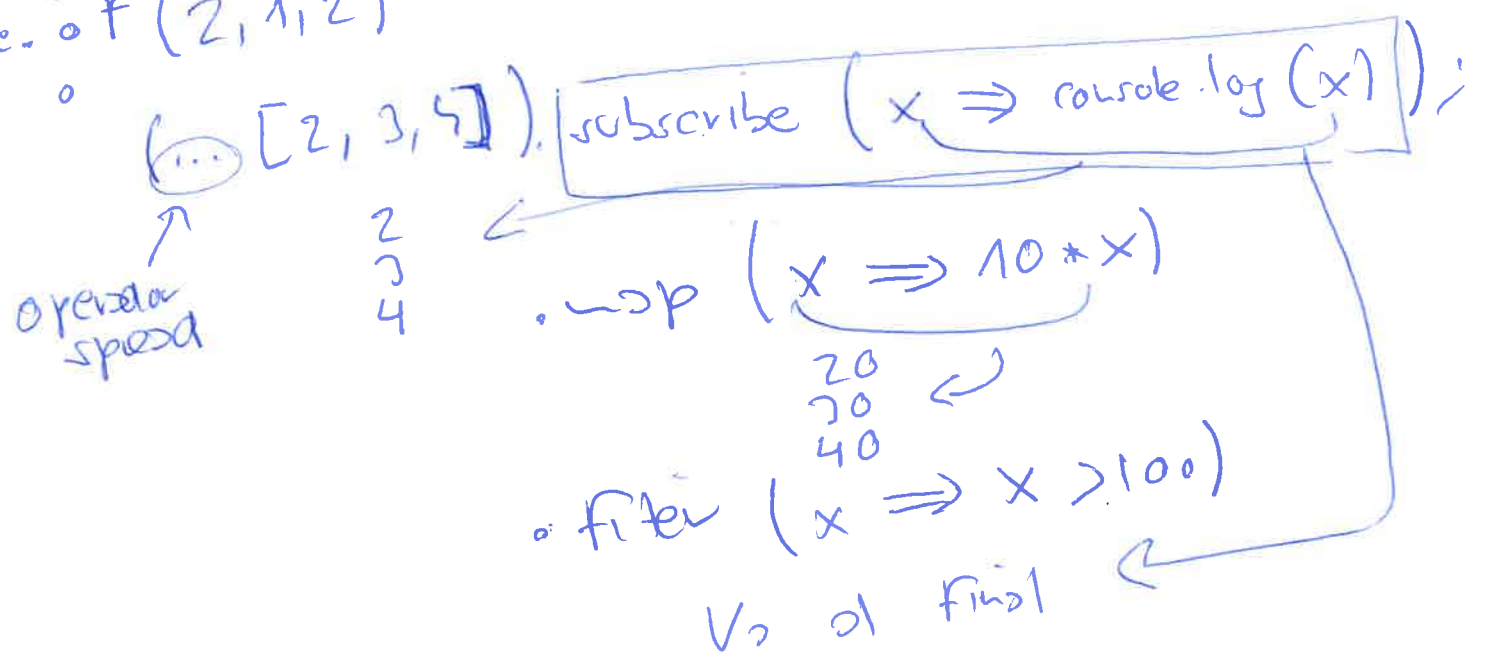 e. of (2, 1, 2)
(... [2, 3, 4]).subscribe (x => console.log (x));
2
3
4
operador
spread
.map (x => 10 * x)
20
30
40
.filter (x => x > 100)
Va al final